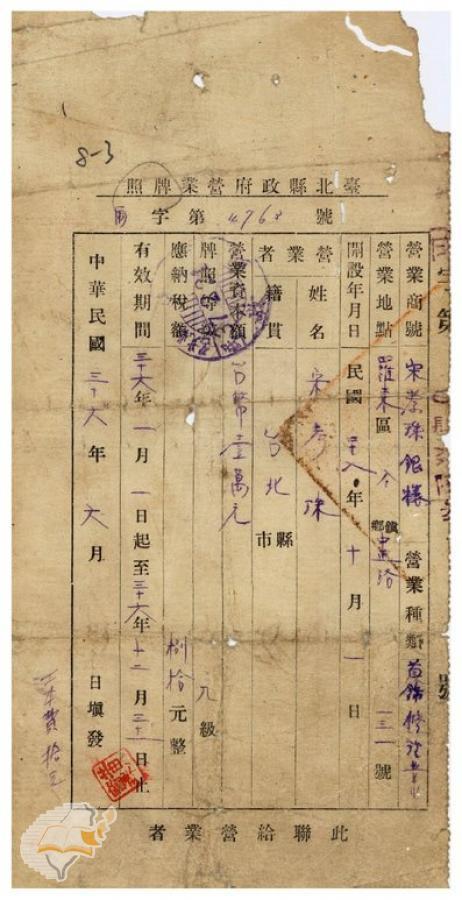 8-3
臺北縣政府營業牌照
字第4768號
營業商號 宋孝珠銀樓 營業種類 首飾修理業
營業地點 羅東區 鎮鄉 中正路 一三一號
開設年月日 民國 年十月一日
營業者 姓名 宋孝珠
籍貫 台北 縣市
營業資本額 台幣壹萬元
牌照等級 級
應納稅額 捌拾元整
有效期間 三十六年一月一日起至三十六年十二月三十一日止
中華民國三十六年六月 日填發
工本費拾元
此聯給營業者